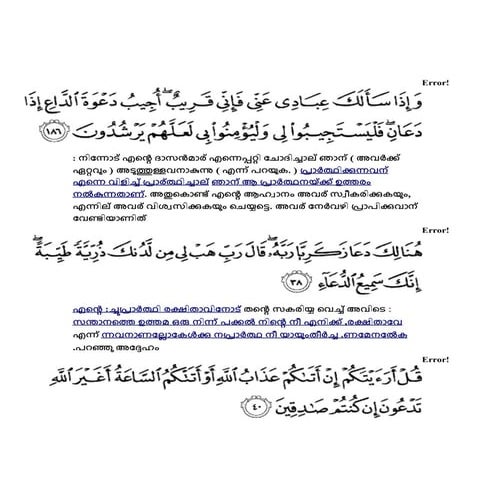 Error!
وَإِذَا سَأَلَكَ عِبَادِى عَنِّى فَإِنِّى قَرِيبٌ ۖ أُجِيبُ دَعْوَةَ الدَّاعِ إِذَا
دَعَانِ ۖ فَلْيَسْتَجِيبُوا لِى وَلْيُؤْمِنُوا بِى لَعَلَّهُمْ يَرْشُدُونَ ١٨٦
: നിന്നോട് എന്റെ ദാസന്‍മാര്‍ എന്നെപ്പറ്റി ചോദിച്ചാല്‍ ഞാന്‍ ( അവര്‍ക്ക്
ഏറ്റവും ) അടുത്തുള്ളവനാകുന്നു ( എന്ന് പറയുക. ) പ്രാര്‍ത്ഥിക്കുന്നവന്‍
എന്നെ വിളിച്ച് പ്രാര്‍ത്ഥിച്ചാല്‍ ഞാന്‍ ആ പ്രാര്‍ത്ഥനയ്ക്ക് ഉത്തരം
നല്‍കുന്നതാണ്. അതുകൊണ്ട് എന്റെ ആഹ്വാനം അവര്‍ സ്വീകരിക്കുകയും,
എന്നില്‍ അവര്‍ വിശ്വസിക്കുകയും ചെയ്യട്ടെ. അവര്‍ നേര്‍വഴി പ്രാപിക്കുവാന്‍
വേണ്ടിയാണിത്
Error!
هُنَالِكَ دَعَا زَكَرِيَّا رَبَّهُ ۖ قَالَ رَبِّ هَبْ لِى مِن لَّدُنكَ ذُرِّيَّةً طَيِّبَةً ۖ
إِنَّكَ سَمِيعُ الدُّعَاءِ ٣٨
എന്റെ :ച്ചുപ്രാര്‍ത്ഥി രക്ഷിതാവിനോട് തന്റെ സകരിയ്യ വെച്ച് അവിടെ :
സന്താനത്തെ ഉത്തമ ഒരു നിന്ന് പക്കല്‍ നിന്റെ നീ എനിക്ക് ,രക്ഷിതാവേ
എന്ന് ന്നവനാണല്ലോകേള്‍ക്കു നപ്രാര്‍ത്ഥ നീ യായുംതീര്‍ച്ച .ണമേനല്‍കേ
.പറഞ്ഞു അദ്ദേഹം
Error!
قُلْ أَرَءَيْتَكُمْ إِنْ أَتَىٰكُمْ عَذَابُ اللَّهِ أَوْ أَتَتْكُمُ السَّاعَةُ أَغَيْرَ اللَّهِ
تَدْعُونَ إِن كُنتُمْ صَٰدِقِينَ ٤٠